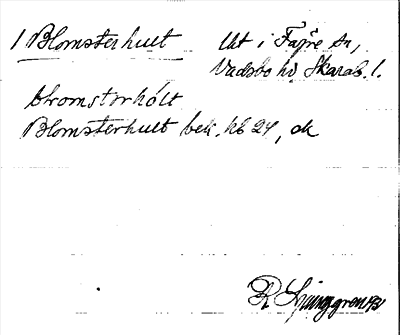 1 Blomsterhult
Utt i Fägre sn,
Vadsbo hd, Skarab. l.
blromstərhə́lt
Blomsterhult bek. kb 24, ok
R Ljunggren 1931